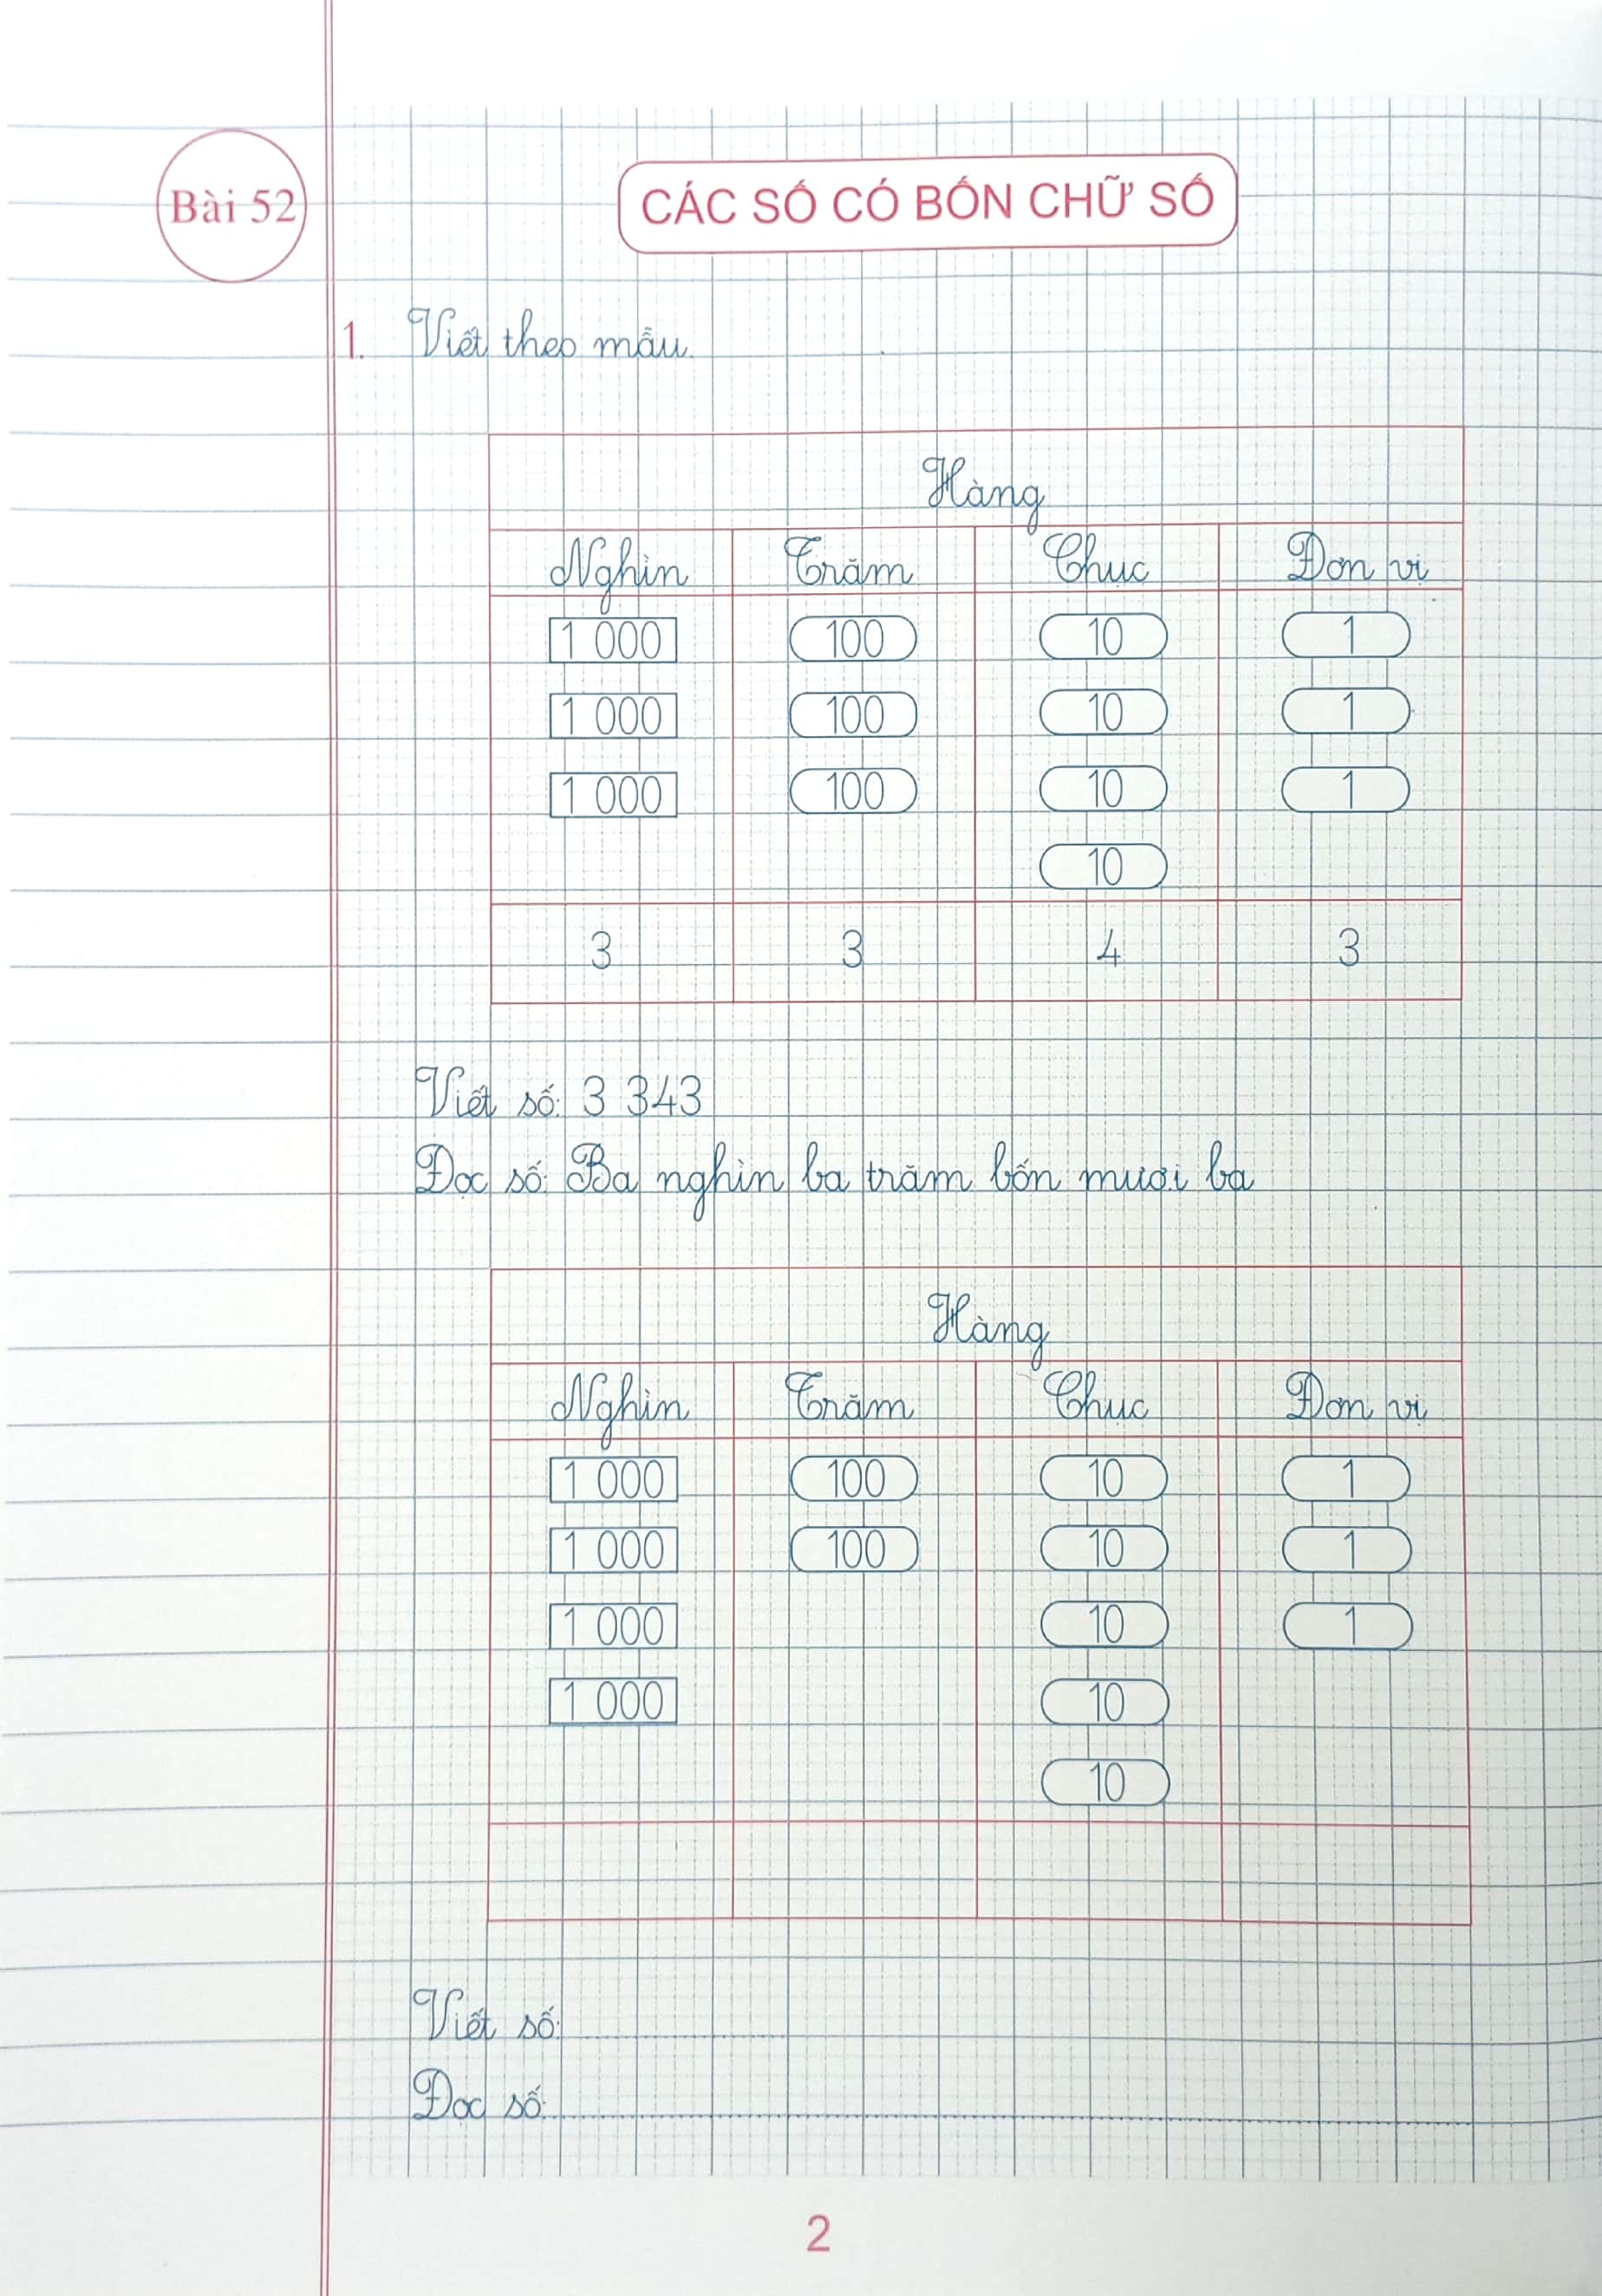 Bài 52
CÁC SỐ CÓ BỐN CHỮ SỐ
1. Viết theo mẫu.
Hàng
Nghìn Trăm Chục Đơn vị
1 000 100 10 1
1 000 100 10 1
1 000 100 10 1
10
3 3 4 3
Viết số: 3 343
Đọc số: Ba nghìn ba trăm bốn mươi ba
Hàng
Nghìn Trăm Chục Đơn vị
1 000 100 10 1
1 000 100 10 1
1 000 10 1
1 000 10
10
Viết số:
Đọc số:
2